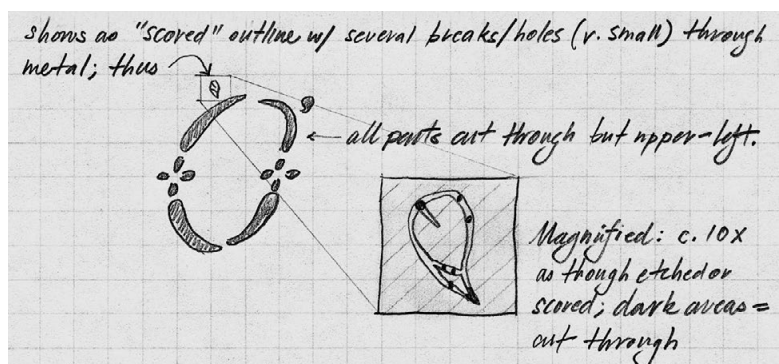 shows as "scored" outline w/ several breaks/holes (v. small) through
metal; thus
all parts cut through but upper-left.
Magnified: c. 10x
as though etched or
scored; dark areas =
cut through